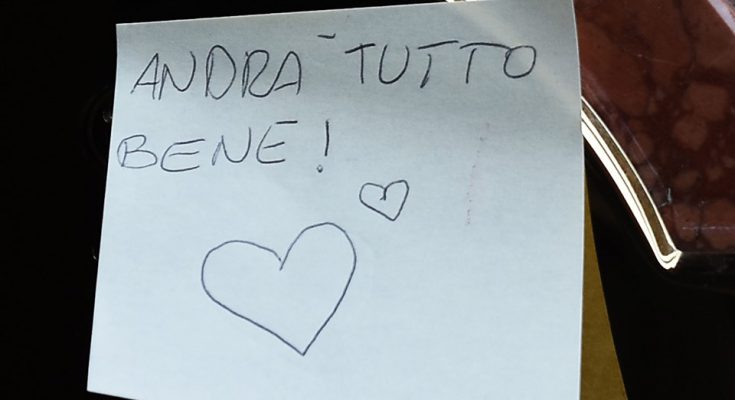 ANDRA' TUTTO
BENE!